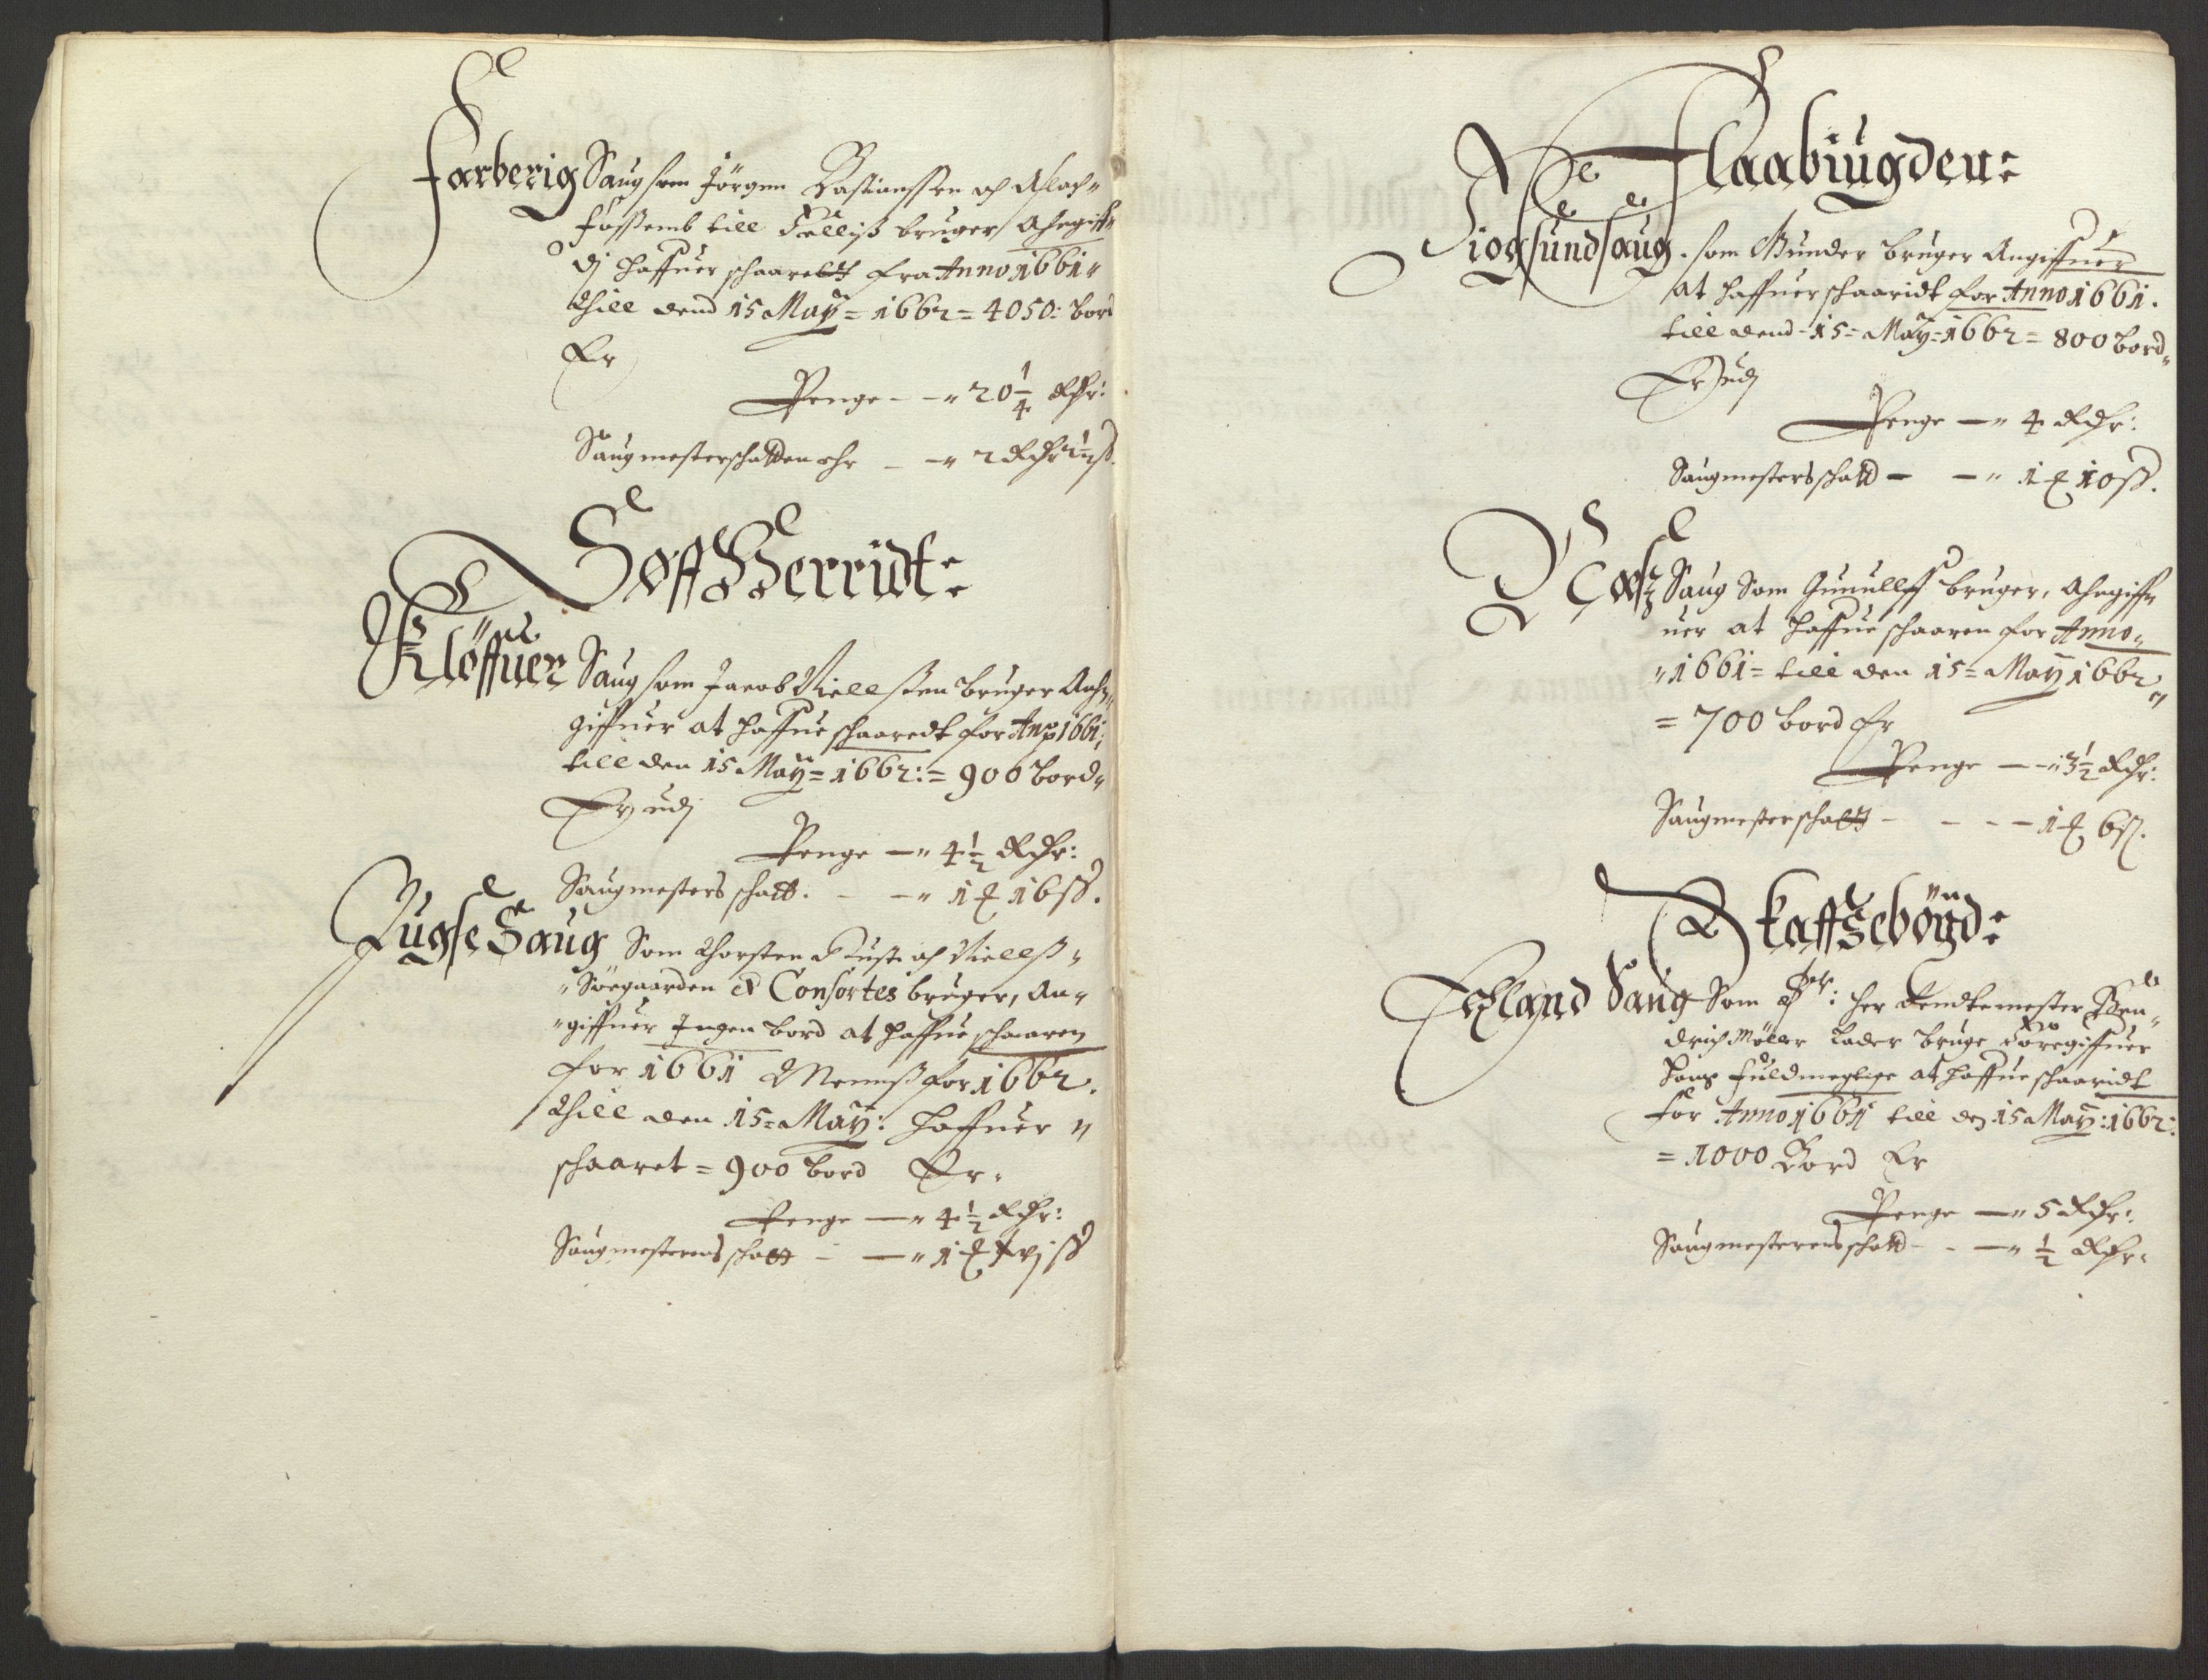 Farberig Saug som Jörgen Bastianssen och Aslach
Fossemb till Fælliß bruger Angiff
dj haffuer schaaret fra Anno 1661
thill dend 15 May = 1662 = 4050: bord
Er
Penge - - 20 1/4 Rdr:
Saugmesterschatten ehr - - 2 Rdr
Søfft Herridt:
Kløffuer Saug som Jacob Niellssen bruger An-
giffuer at haffue schaaredt for Anno 1661,
till den 15 May = 1662: = 900 bord
Er udj
Penge — 4 1/2 Rdr:
Saugmesters schatt. - - 1 £ 16 ß.
Rugse Saug Som Thorsten Rust och Niellß
Sörgaarden et Consortes bruger, An-
giffuer Ingen bord at haffue schaaren
for 1661 Menß for 1662.
thill den 15 = May: haffuer
schaaret = 900 bord Er.
Penge — 4 1/2 Rdr:
Saugmesterens schatt - — 1 £ xvj ß
Flaabiugden:
Siogsund saug. som Gunder bruger Angiffuer
at haffuer schaaridt for Anno 1661.
till dend = 15 = May = 1662 = 800 bord
Er udj
Penge — 4 Rdr:
Saugmesters schatt — — 1 £ 10 ß.
Saug Som Gunulff bruger, Angiff-
uer at haffue schaaren for Anno
1661 = till den 15 = May 1662
= 700 bord Er
Penge — 3 1/2 Rdr:
Saugmesterschatt - - - - 1 £ 6 ß.
Skaffzebøyd:
Saug Som her Rendtemester Hen-
drich Möller Lader bruge
hans fuldmegtige at haffue schaaridt
for Anno 1661 till den 15 May: 1662:
= 1000 Bord Er
Penge — 5 Rdr:
Saugmesterens schatt - - — 1/2 Rdr.